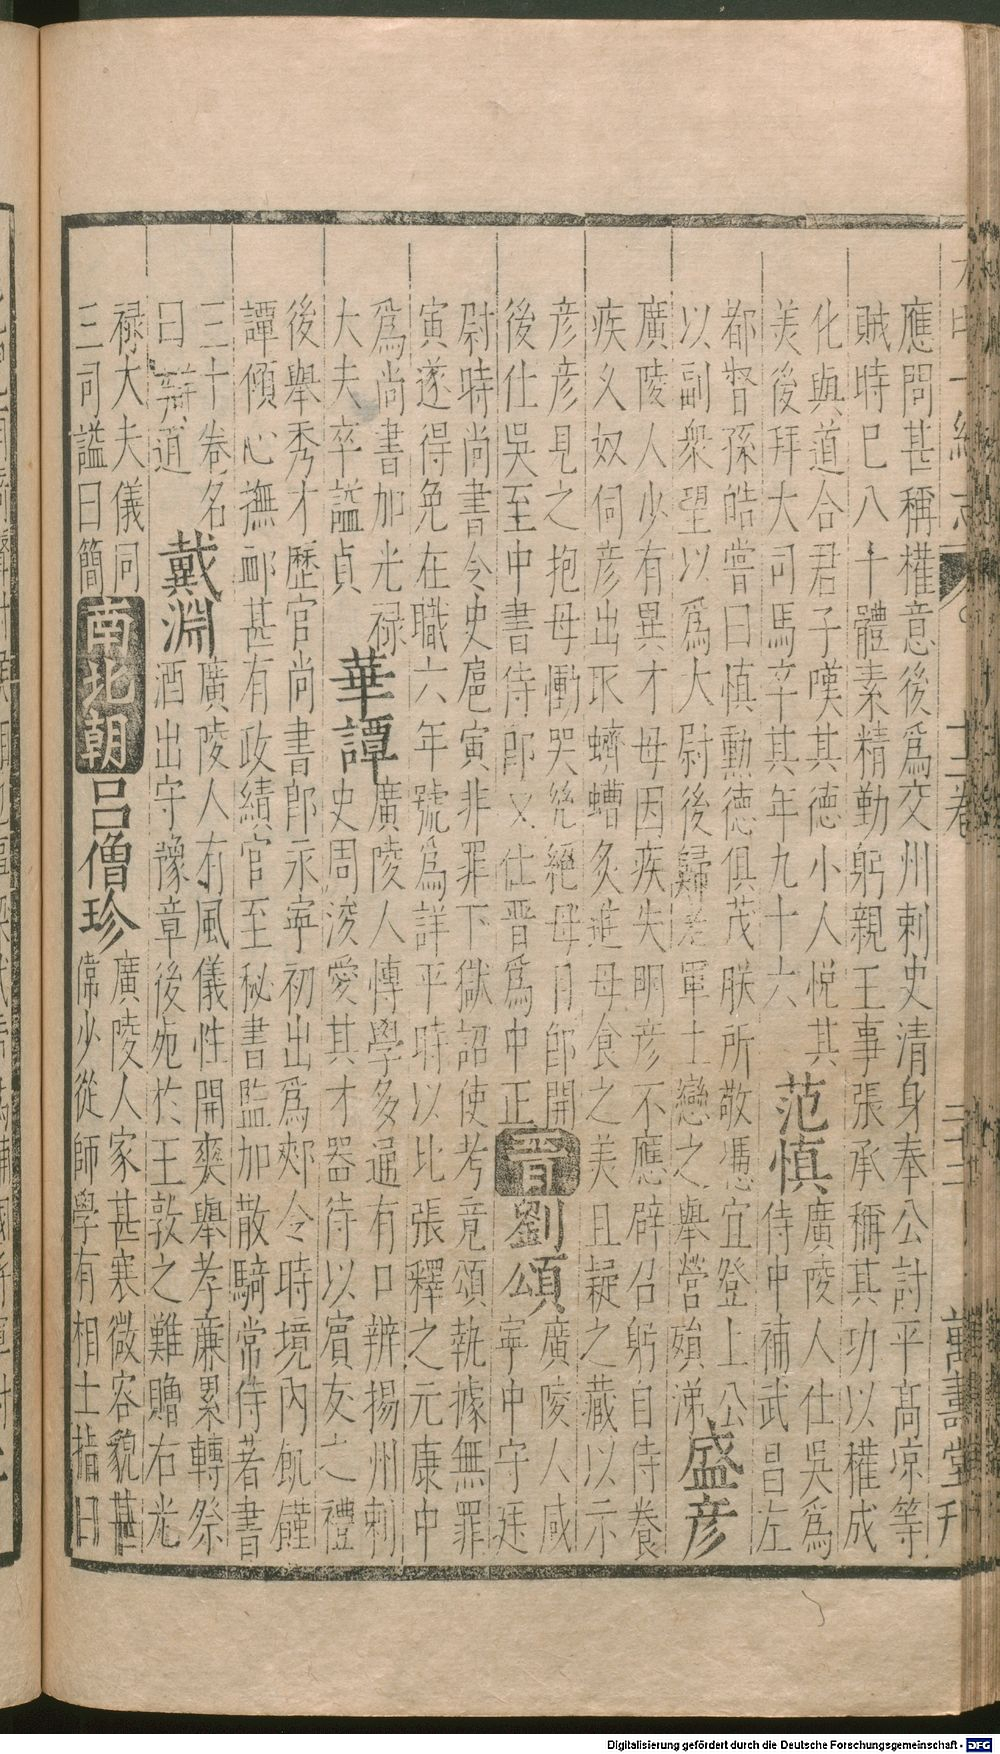 應問甚稱權意後爲交州刺史清身奉公討平高凉等
賊時巳八十體素精勤躬親王事張承稱其功以權成
化與道合君子嘆其德小人悅其
美後拜大司馬卒其年九十六
范慎
廣陵人仕吳爲
侍中補武昌左
都督孫皓嘗曰慎勳德俱茂朕所敬憑宜登上公
以副衆望以爲大尉後歸老軍士戀之舉營殞涕
盛彥
廣陵人少有異才母因疾失明彥不應辟召躬自侍養
疾久奴伺彥出取蠐螬炙進母食之美且疑之藏以示
彥彥見之抱母慟哭絶母目卽開
後仕吳至中書侍郎又仕晋爲中正
晉
劉頌
廣陵人咸
寧中守廷
尉時尚書令史扈寅非罪下獄詔使考竟頌執據無罪
寅遂得免在職六年號爲詳平時以比張釋之元康中
爲尚書加光祿
大夫卒謚貞
華譚
廣陵人博學多通有口辨揚州刺
史周浚愛其才器待以賓友之禮
後舉秀才歷官尚書郎永寧初出爲郟令時境內飢饉
譚傾心撫䘏甚有政績官至秘書監加散騎常侍著書
三十卷名
曰辯道
戴淵
廣陵人有風儀性開爽舉孝廉累轉祭
酒出守豫章後死於王敦之難贈右光
祿大夫儀同
三司謚曰簡
南北朝
呂僧珍
廣陵人家甚寒微容貌甚
偉少從師學有相士指曰
十二卷
三十二
萬壽堂刋
Digitalisierung gefördert durch die Deutsche Forschungsgemeinschaft - DFG